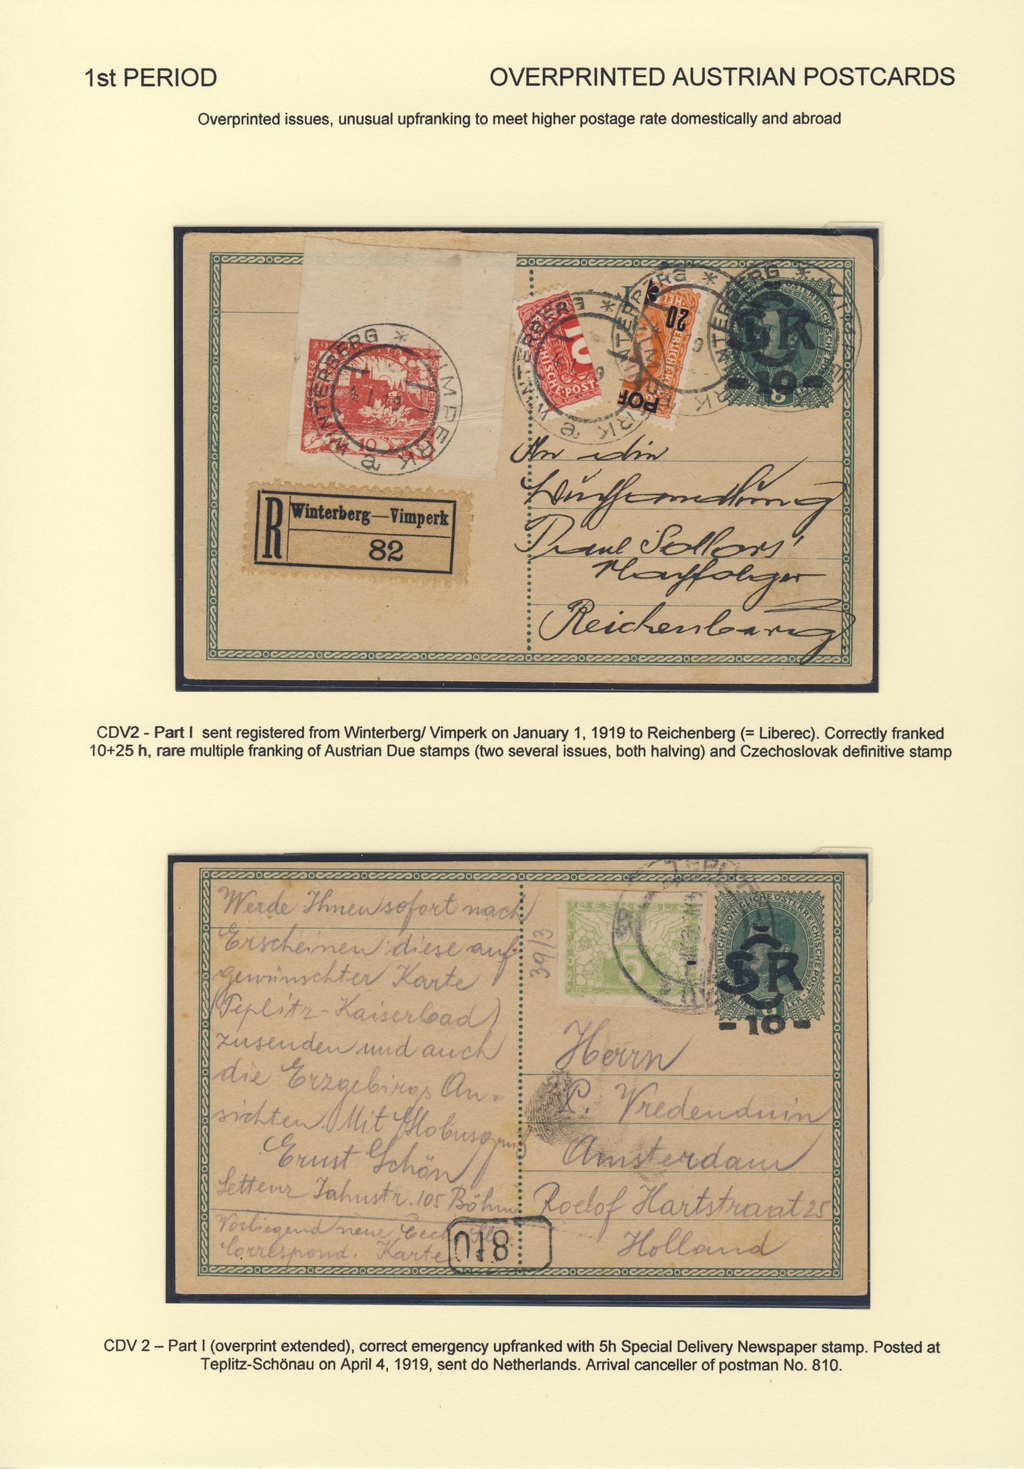 1st PERIOD
OVERPRINTED AUSTRIAN POSTCARDS
Overprinted issues, unusual upfranking to meet higher postage rate domestically and abroad
WINTERBERG * VIMPERK
10
20
POR
SR
-10-
8
R Winterberg—Vimperk
82
An die
Buchhandlung
Paul Sollors'
Nachfolger
Reichenberg
CDV2 - Part I sent registered from Winterberg/ Vimperk on January 1, 1919 to Reichenberg (= Liberec). Correctly franked
10+25 h, rare multiple franking of Austrian Due stamps (two several issues, both halving) and Czechoslovak definitive stamp
Werde Ihnen sofort nach
Erscheinen diese auf
gewünschter Karte
(Teplitz-Kaiserbad)
zusenden und auch
die Erzgebirgs An-
sichten. Mit Globusgruß
Ernst Schön
Settenz Jahnstr. 105 Böhm
Vorliegend neue
Correspond. Karte
39/3
5
SR
-10-
Herrn
P. Vredenduin
Amsterdam
Roelof Hartstraat 25
Holland
018
CDV 2 – Part I (overprint extended), correct emergency upfranked with 5h Special Delivery Newspaper stamp. Posted at
Teplitz-Schönau on April 4, 1919, sent do Netherlands. Arrival canceller of postman No. 810.